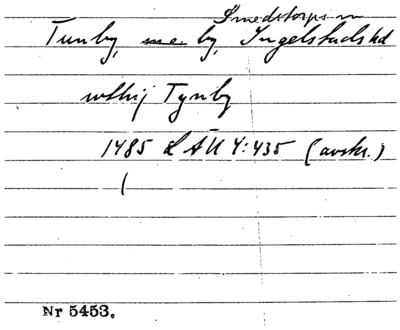 Smedstorps sn
Tunby, by, Ingelstads hd
Tynby
1485 LÄU 4:435 (avskr.)
(
Nr 5453.